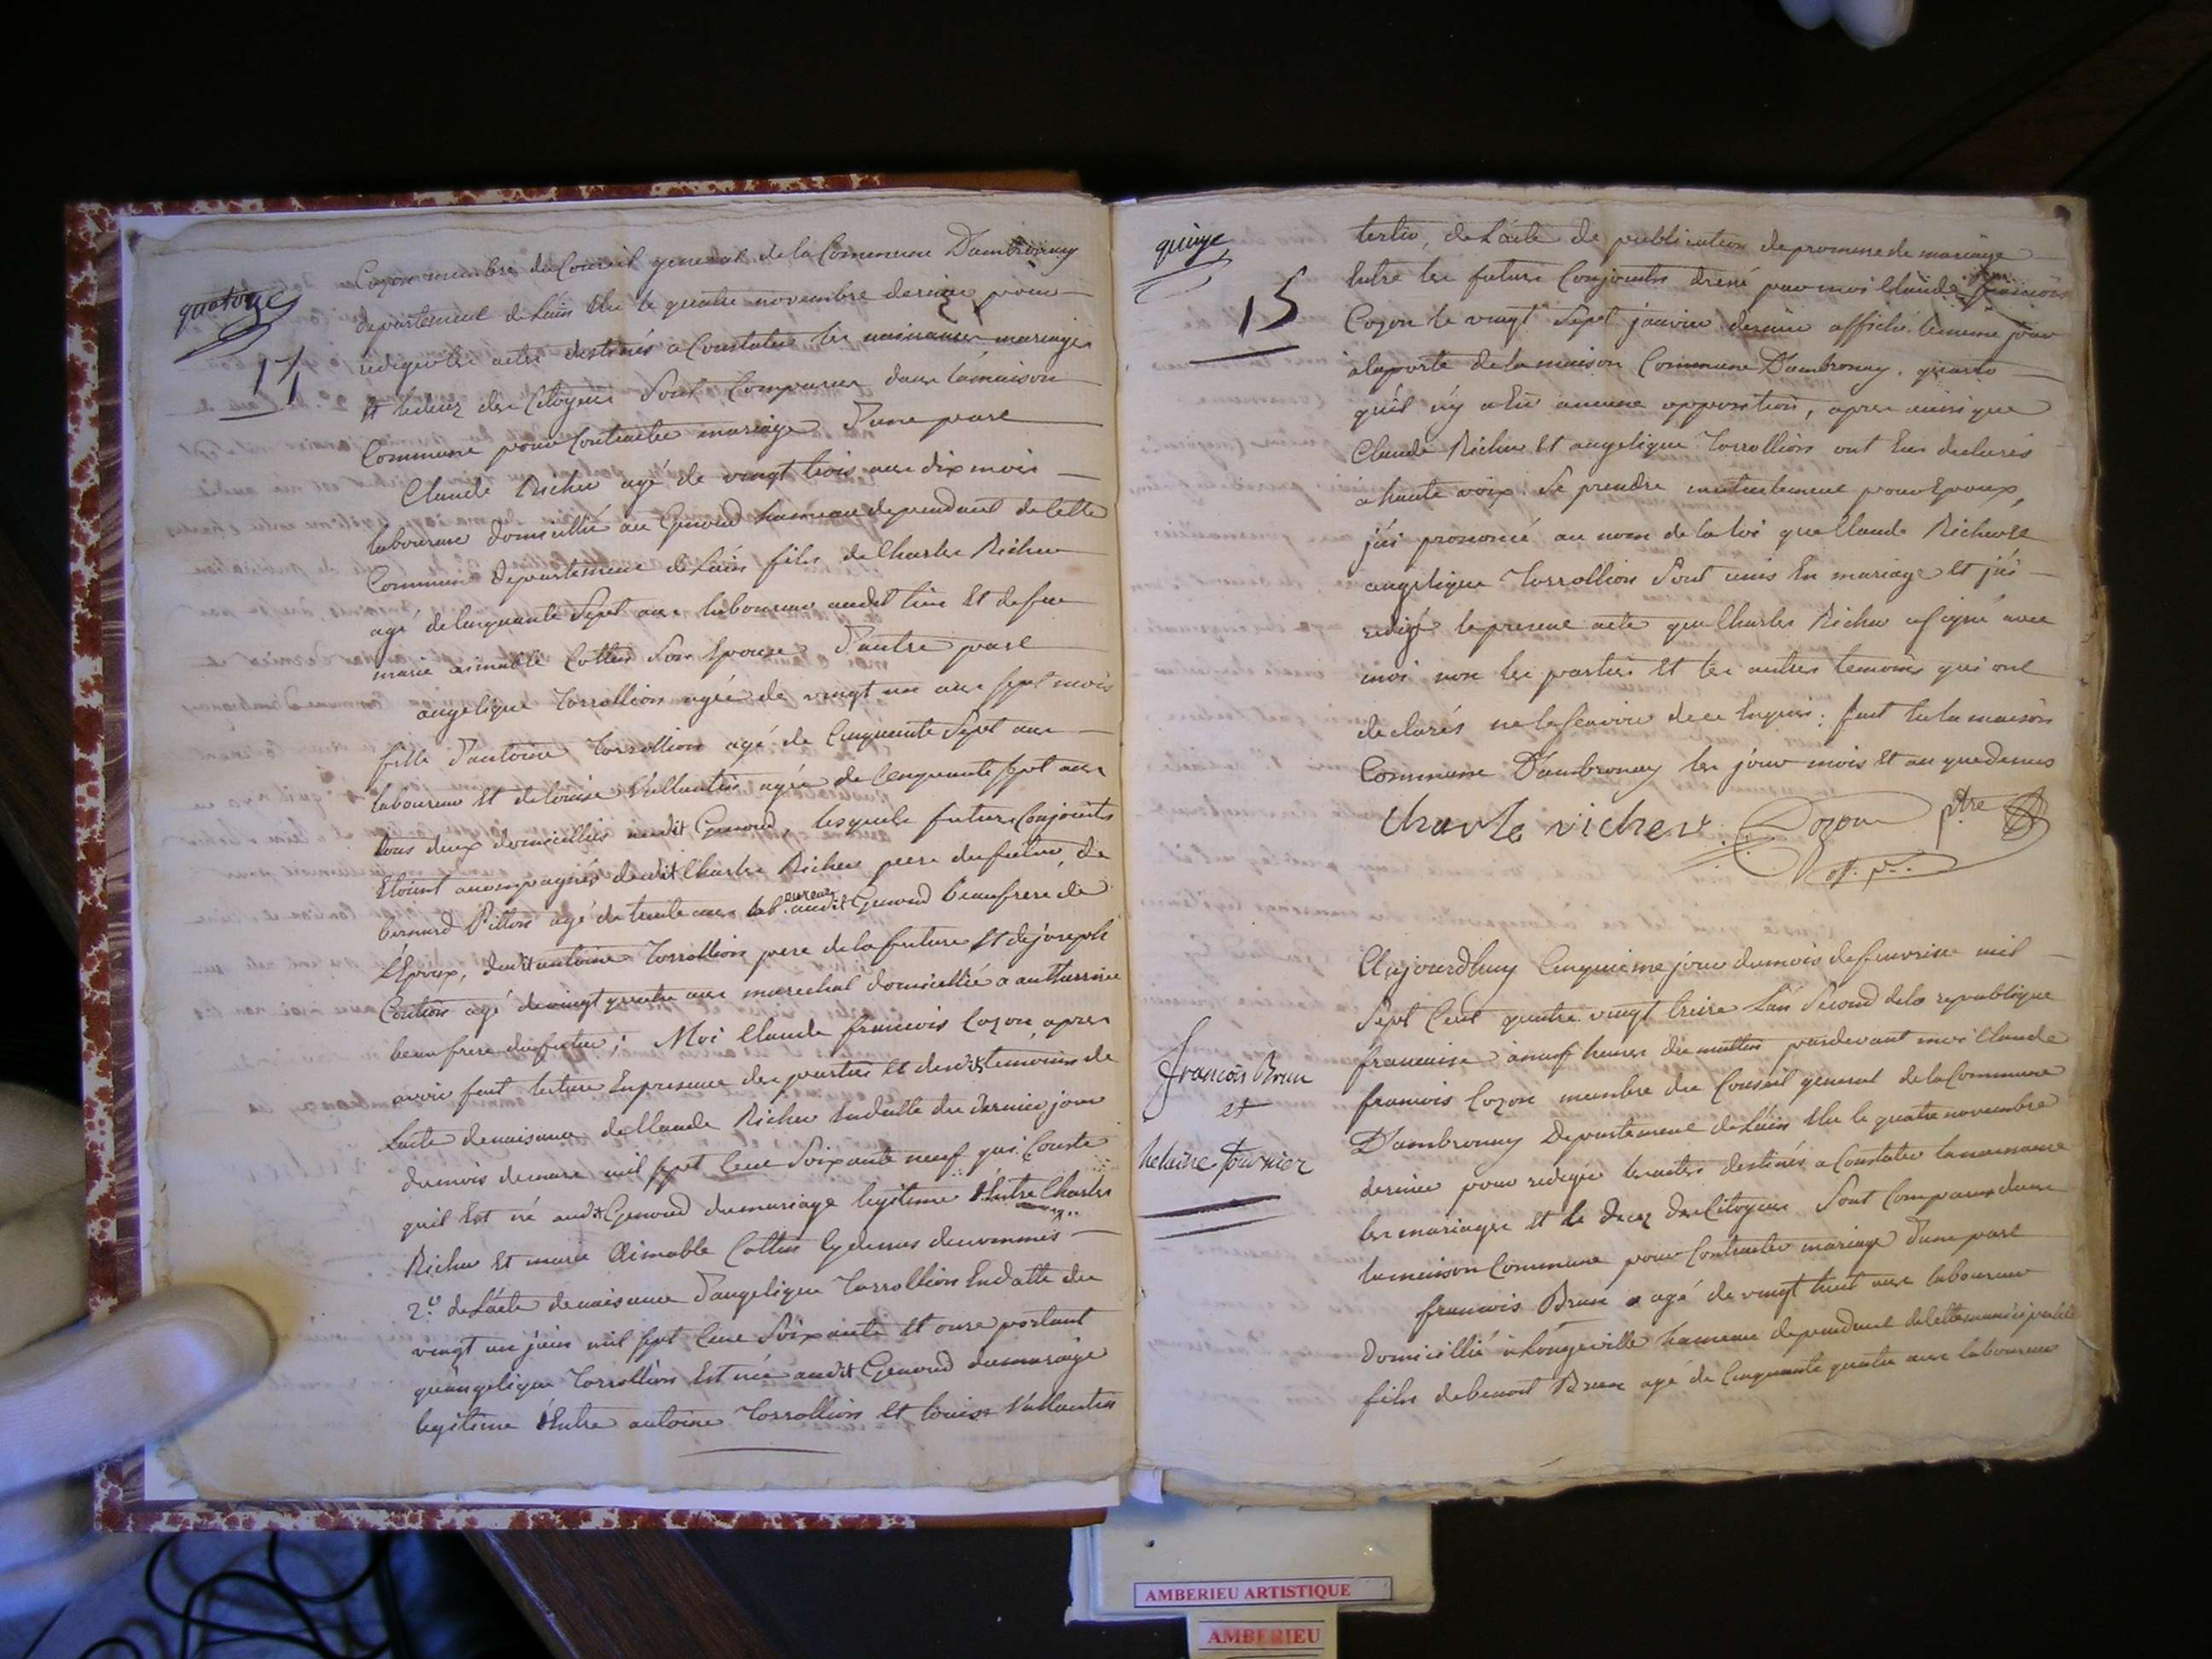 quatorze
14
Cozon membre du Conseil general de la Commune Dambronay
departement de Lain Elu le quatre novembre dernier pour
rediger les actes destinés a Constater les naissances mariages
Et decez des Citoyens Sont Comparus dans la maison
Commune pour Contracter mariage D'une part
Claude Richer agé de vingt trois ans dix mois
laboureur domicillié au Genoud hameau dependant de Cette
Commune departement de Lain fils de Charles Richer
agé de Cinquante Sept ans laboureur audit lieu Et de feue
marie aimable Cottin Son Epouse D'autre part
angelique Torrollion agée de vingt un ans sept mois
fille D'antoine Torrollion agé de Cinquante Sept ans
laboureur Et de louise Vallantin agée de Cenquante sept ans
tous deux domicilliés audit Genoud, lesquels futurs Conjoints
Etoient accompagnés dudit Charles Richer pere du futur, de
bernard Pitton agé de trente ans laboureur audit Genoud beaufrere de
L'Epoux, dudit antoine Torrollion pere de la future Et de joseph
Coution agé de vingt quatre ans marechal domicillié a
beaufrere du futur; Moi Claude francois Cozon, apres
avoir fait lecture En presence des parties Et desdits temoins de
Lacte de naisance de Claude Richer En datte du dernier jour
du mois de mars mil sept Cent Soixante neuf qui Conste
quil Est né audit Genoud du mariage legitime d'Entre Charles
Richer Et marie Aimable Cottin Cydessus denommés
2º. de Lacte de naisance D'angelique Torrollion En datte du
vingt un juin mil sept Cent Soixante Et onze portant
qu'angelique Torrollion Est née audit Genoud du mariage
legitime d'Entre antoine Torrollion Et louise Vallantin
quinze
15
tertio, de Lacte de publication de promesse de mariage
Entre les futurs Conjoints dressé par moi Claude francois
Cozon le vingt Sept janvier dernier affiché le meme jour
a la porte de la maison Commune Dambronay. quarto
qu'il n'y a Eu aucune opposition, apres aussi que
Claude Richer Et angelique Torrollion ont Eus declarés
a haute voix Se prendre mutuelement pour Epoux,
j'ai prononcé au nom de la loi que Claude Richer Et
angelique Torrollion Sont unis En mariage Et j'ai
redigé le present acte que Charles Richer a Signé avec
moi non les parties Et les autres temoins qui ont
declarés ne le Scavoir de ce Enquis: fait En la maison
Commune D'ambronay les jour mois Et an que dessus
Charle richer Cozon ptre
of. p..
Aujourdhuy Cinquieme jour du mois de fevrier mil
Sept Cent quatre vingt treize Lan Second de la republique
francaise a neuf heures du mattin pardevant moi Claude
francois Cozon membre du Conseil general de la Commune
D'ambronay Departement de Lain Elu le quatre novembre
dernier pour rediger les actes destinés a Constater la naissance
les mariages Et le decez des Citoyens Sont Comparus dans
la maison Commune pour Contracter mariage D'une part
francois Brun agé de vingt huit ans laboureur
domicillié a Longeville hameau dependant de Cette municipalité
fils de benoit Brun agé de Cinquante quatre ans laboureur
francois Brun
et
helaine fournier
AMBERIEU ARTISTIQUE
AMBERIEU